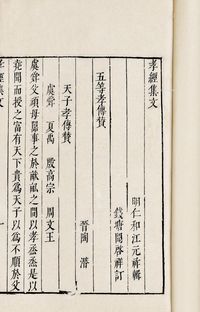 孝經集文
明仁和江元祚輯
錢塘聞啓祥訂
五等孝傳贊
晉陶潛
天子孝傳贊
虞舜 夏禹 殷高宗 周文王
虞舜父頑母嚚事之於畎畝之間以孝烝烝是以
堯聞而授之富有天下貴為天子以為不順於父
孝經集文 一